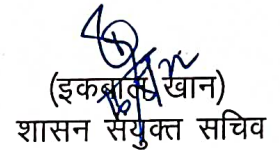 (इकबाल खान)
शासन संयुक्त सचिव